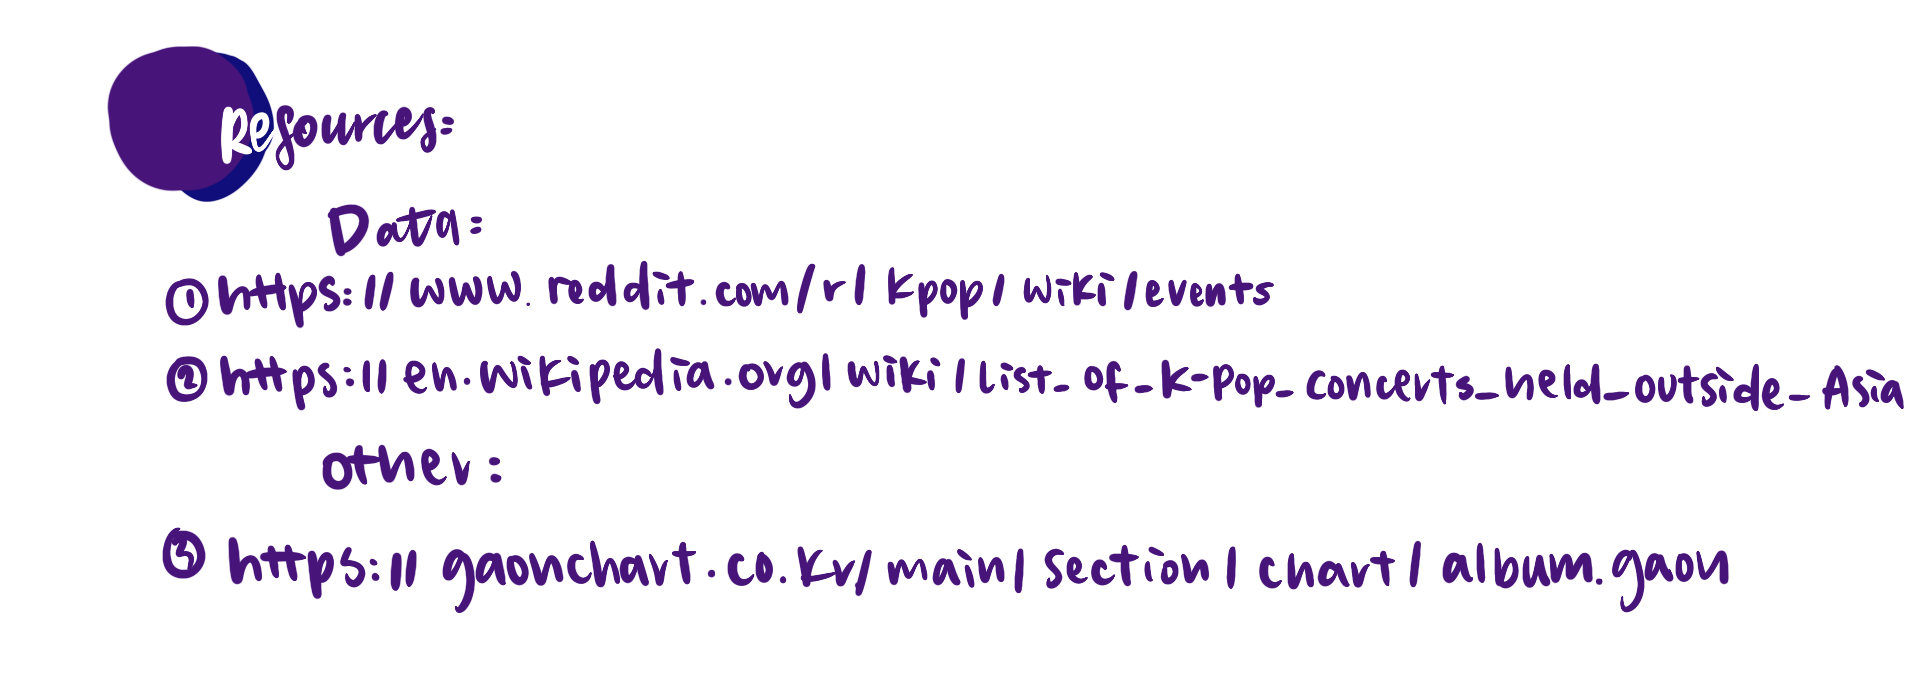 Resources:
Data:
① https://www.reddit.com/r/kpop/wiki/events
② https://en.wikipedia.org/wiki/List_of_K-Pop_concerts_held_outside_Asia
other:
③ https://gaonchart.co.kr/main/section/chart/album.gaon